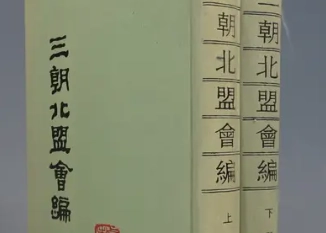 三朝北盟會編
朝北盟會編
上
三朝北盟會編
下